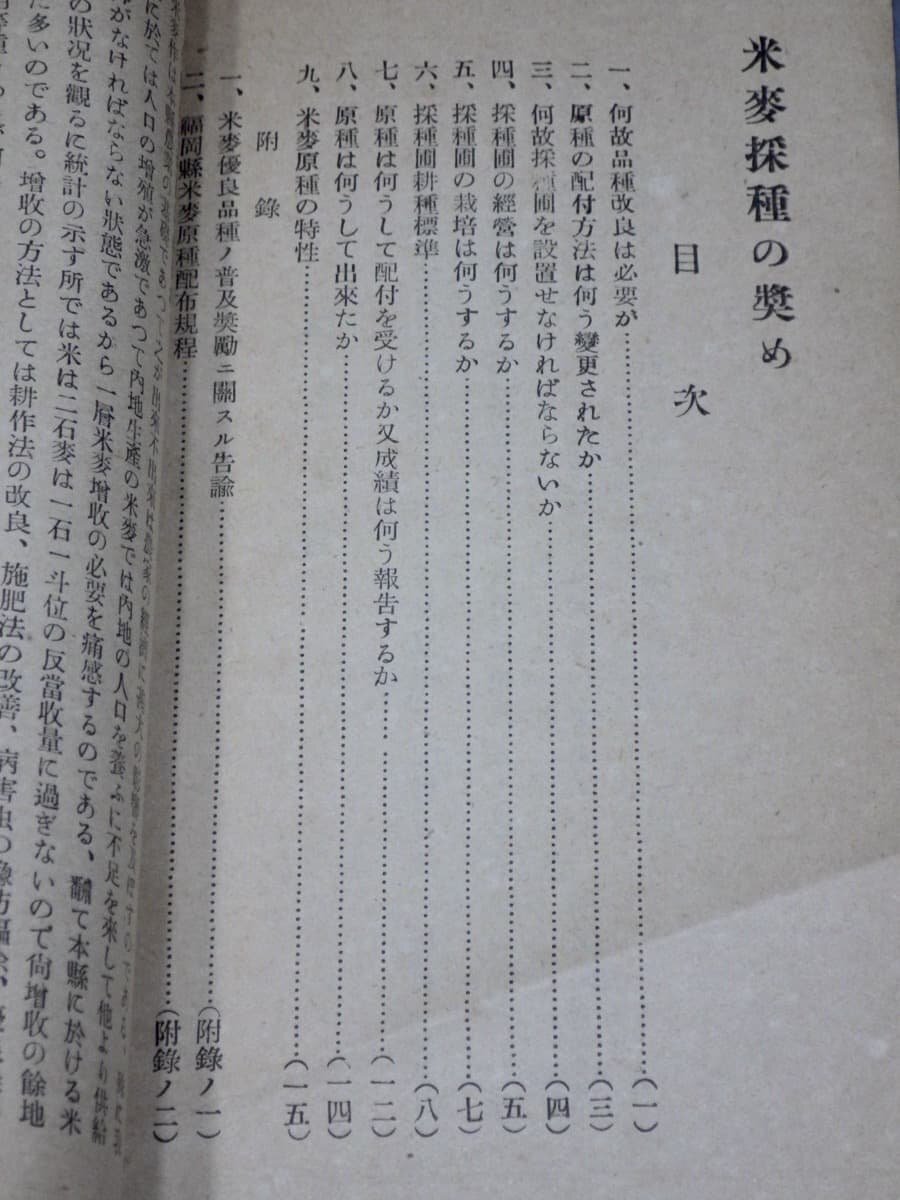 米麥採種の奬め
目次
一、何故品種改良は必要が……(一)
二、原種の配付方法は何う變更されたか……(三)
三、何故採種圃を設置せなければならないか……(四)
四、採種圃の經營は何うするか……(五)
五、採種圃の栽培は何うするか……(七)
六、採種圃耕種標準……(八)
七、原種は何うして配付を受けるか又成績は何う報告するか……(一二)
八、原種は何うして出來たか……(一四)
九、米麥原種の特性……(一五)
附錄
一、米麥優良品種ノ普及奬勵ニ關スル告諭……(附錄ノ一)
二、福岡縣米麥原種配布規程……(附錄ノ二)
に於ては人口の增殖が急激であつて內地生產の米麥では內地の人口を養ふに不足を來して他より供給
がなければならない狀態であるから一層米麥增收の必要を痛感するのである、飜て本縣に於ける米
の狀況を觀るに統計の示す所では米は二石麥は一石一斗位の反當收量に過ぎないので尙增收の餘地
た多いのである。增收の方法としては耕作法の改良、施肥法の改善、病害虫の豫防驅除、